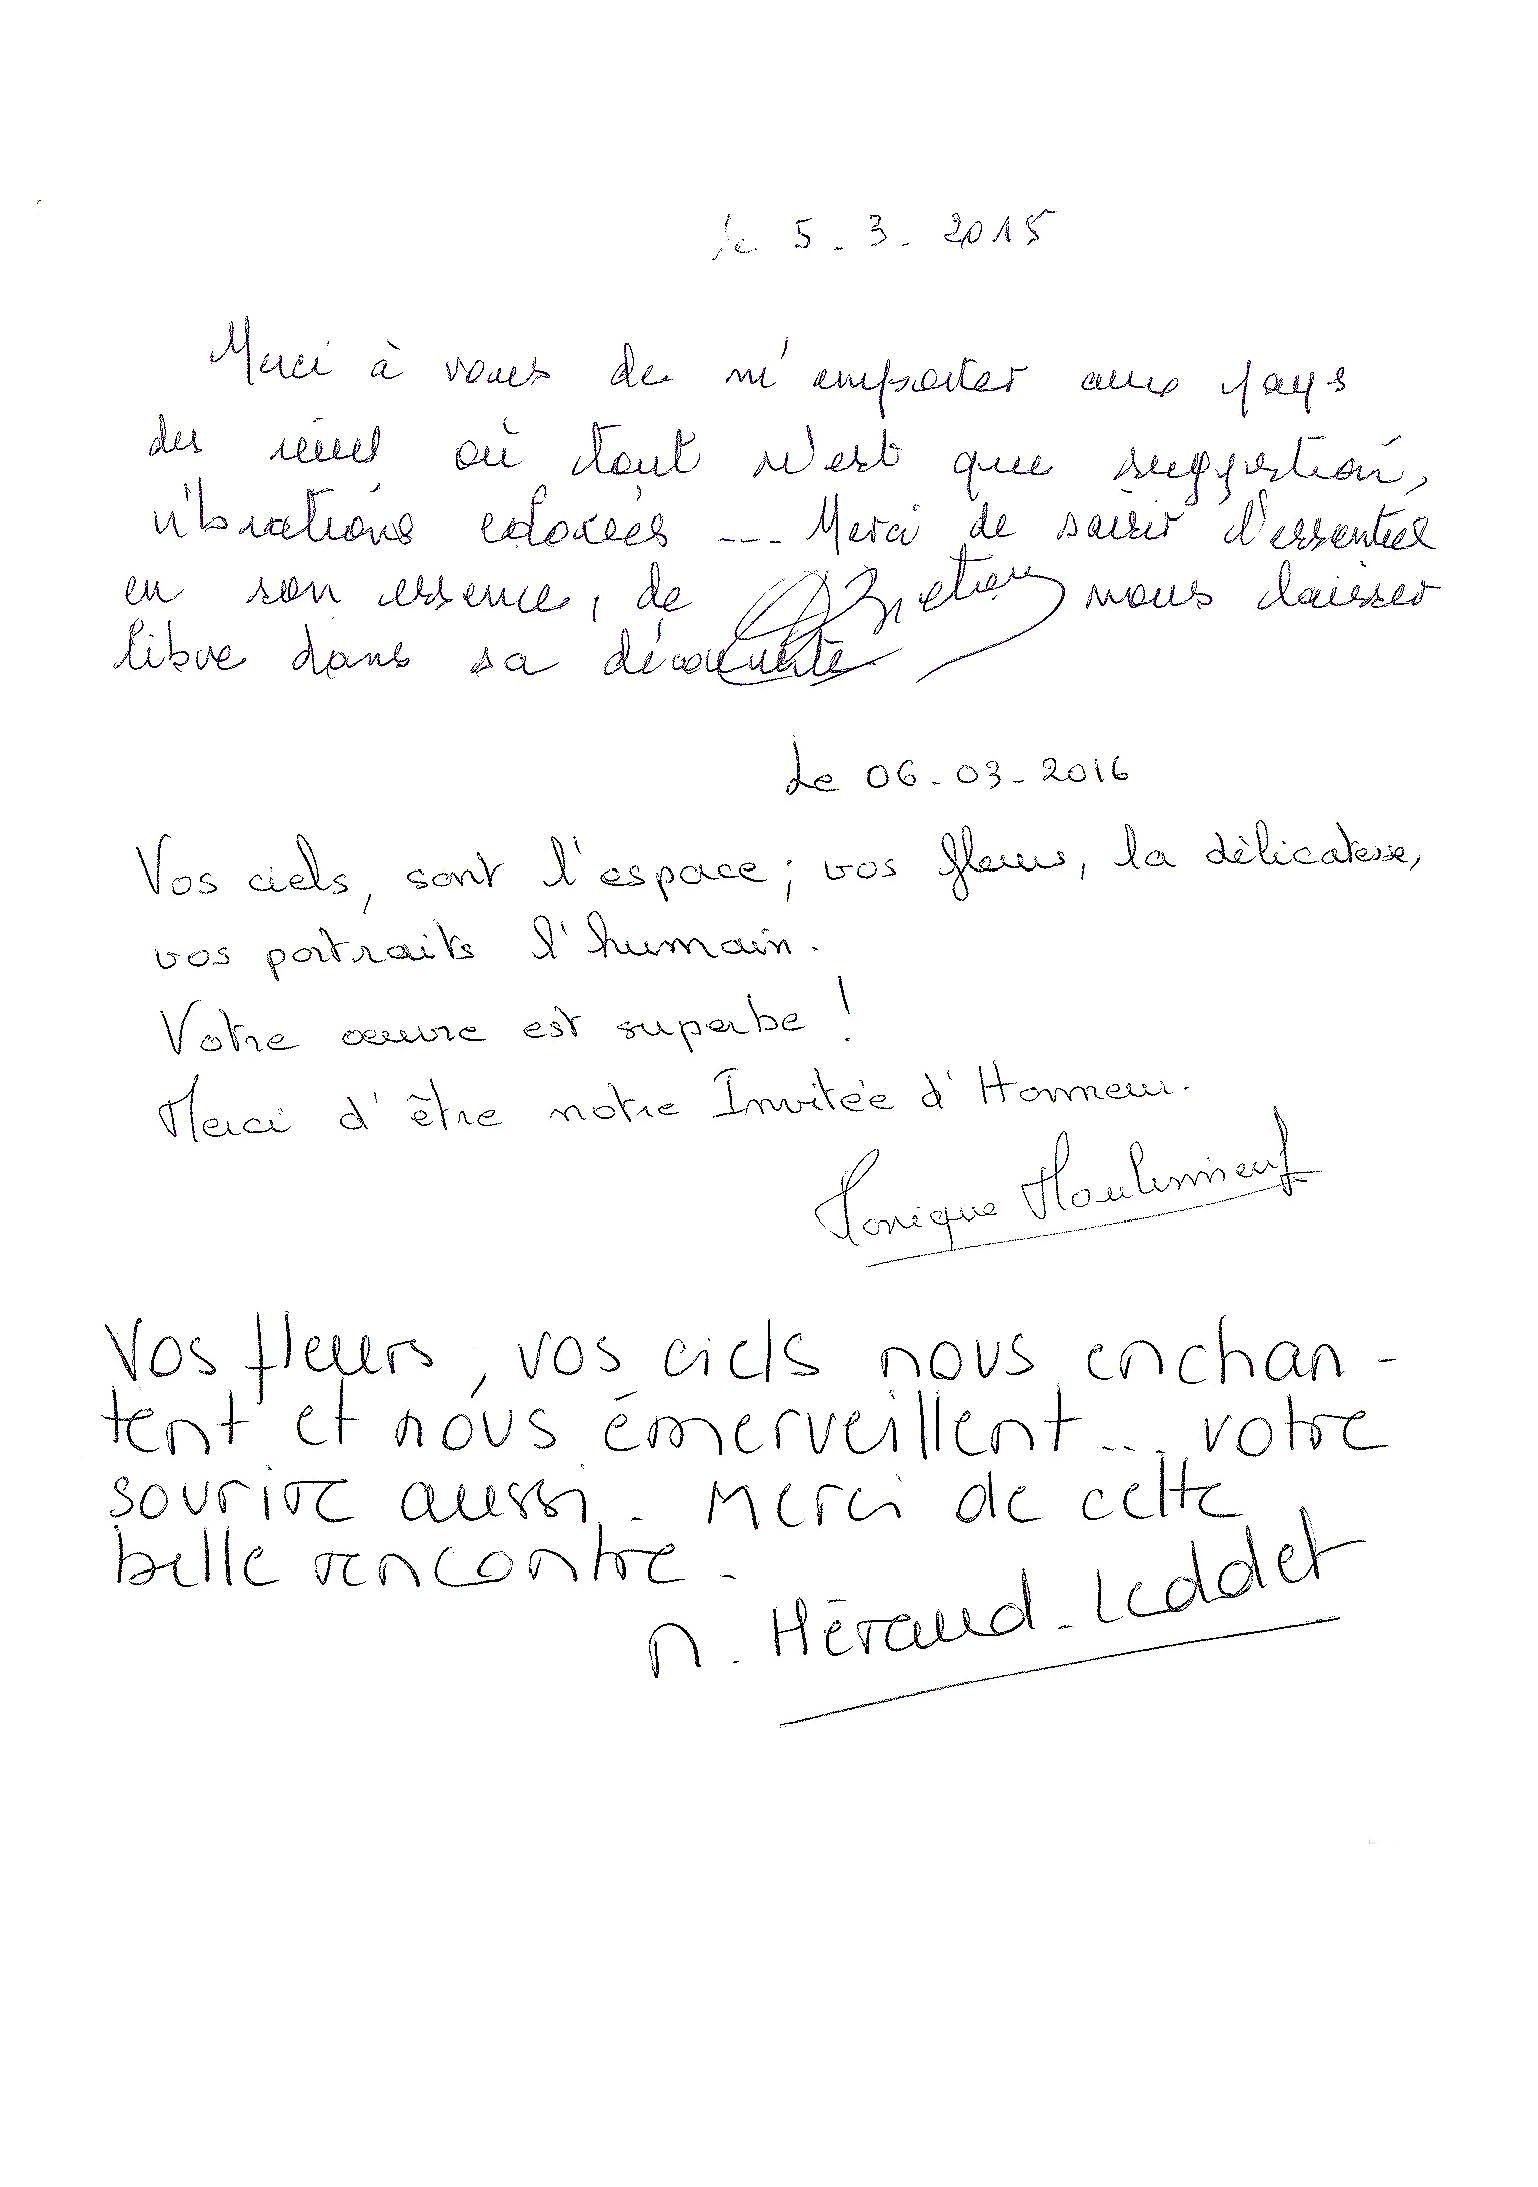 le 5.3.2015
Merci à vous de m'emporter aux pays
des où tout n'est que suggestion,
vibrations colorées --- Merci de saisir l'essentiel
en son essence, de nous laisser
libre dans sa découverte
Le 06-03-2016
Vos ciels, sont l'espace ; vos fleurs, la délicatesse,
vos portraits l'humain.
Votre œuvre est superbe !
Merci d'être notre Invitée d'Honneur.
Monique
Vos fleurs, vos ciels nous enchan-
tent et nous émerveillent... votre
sourire aussi. Merci de cette
belle rencontre.
M. Héraud-Leddet